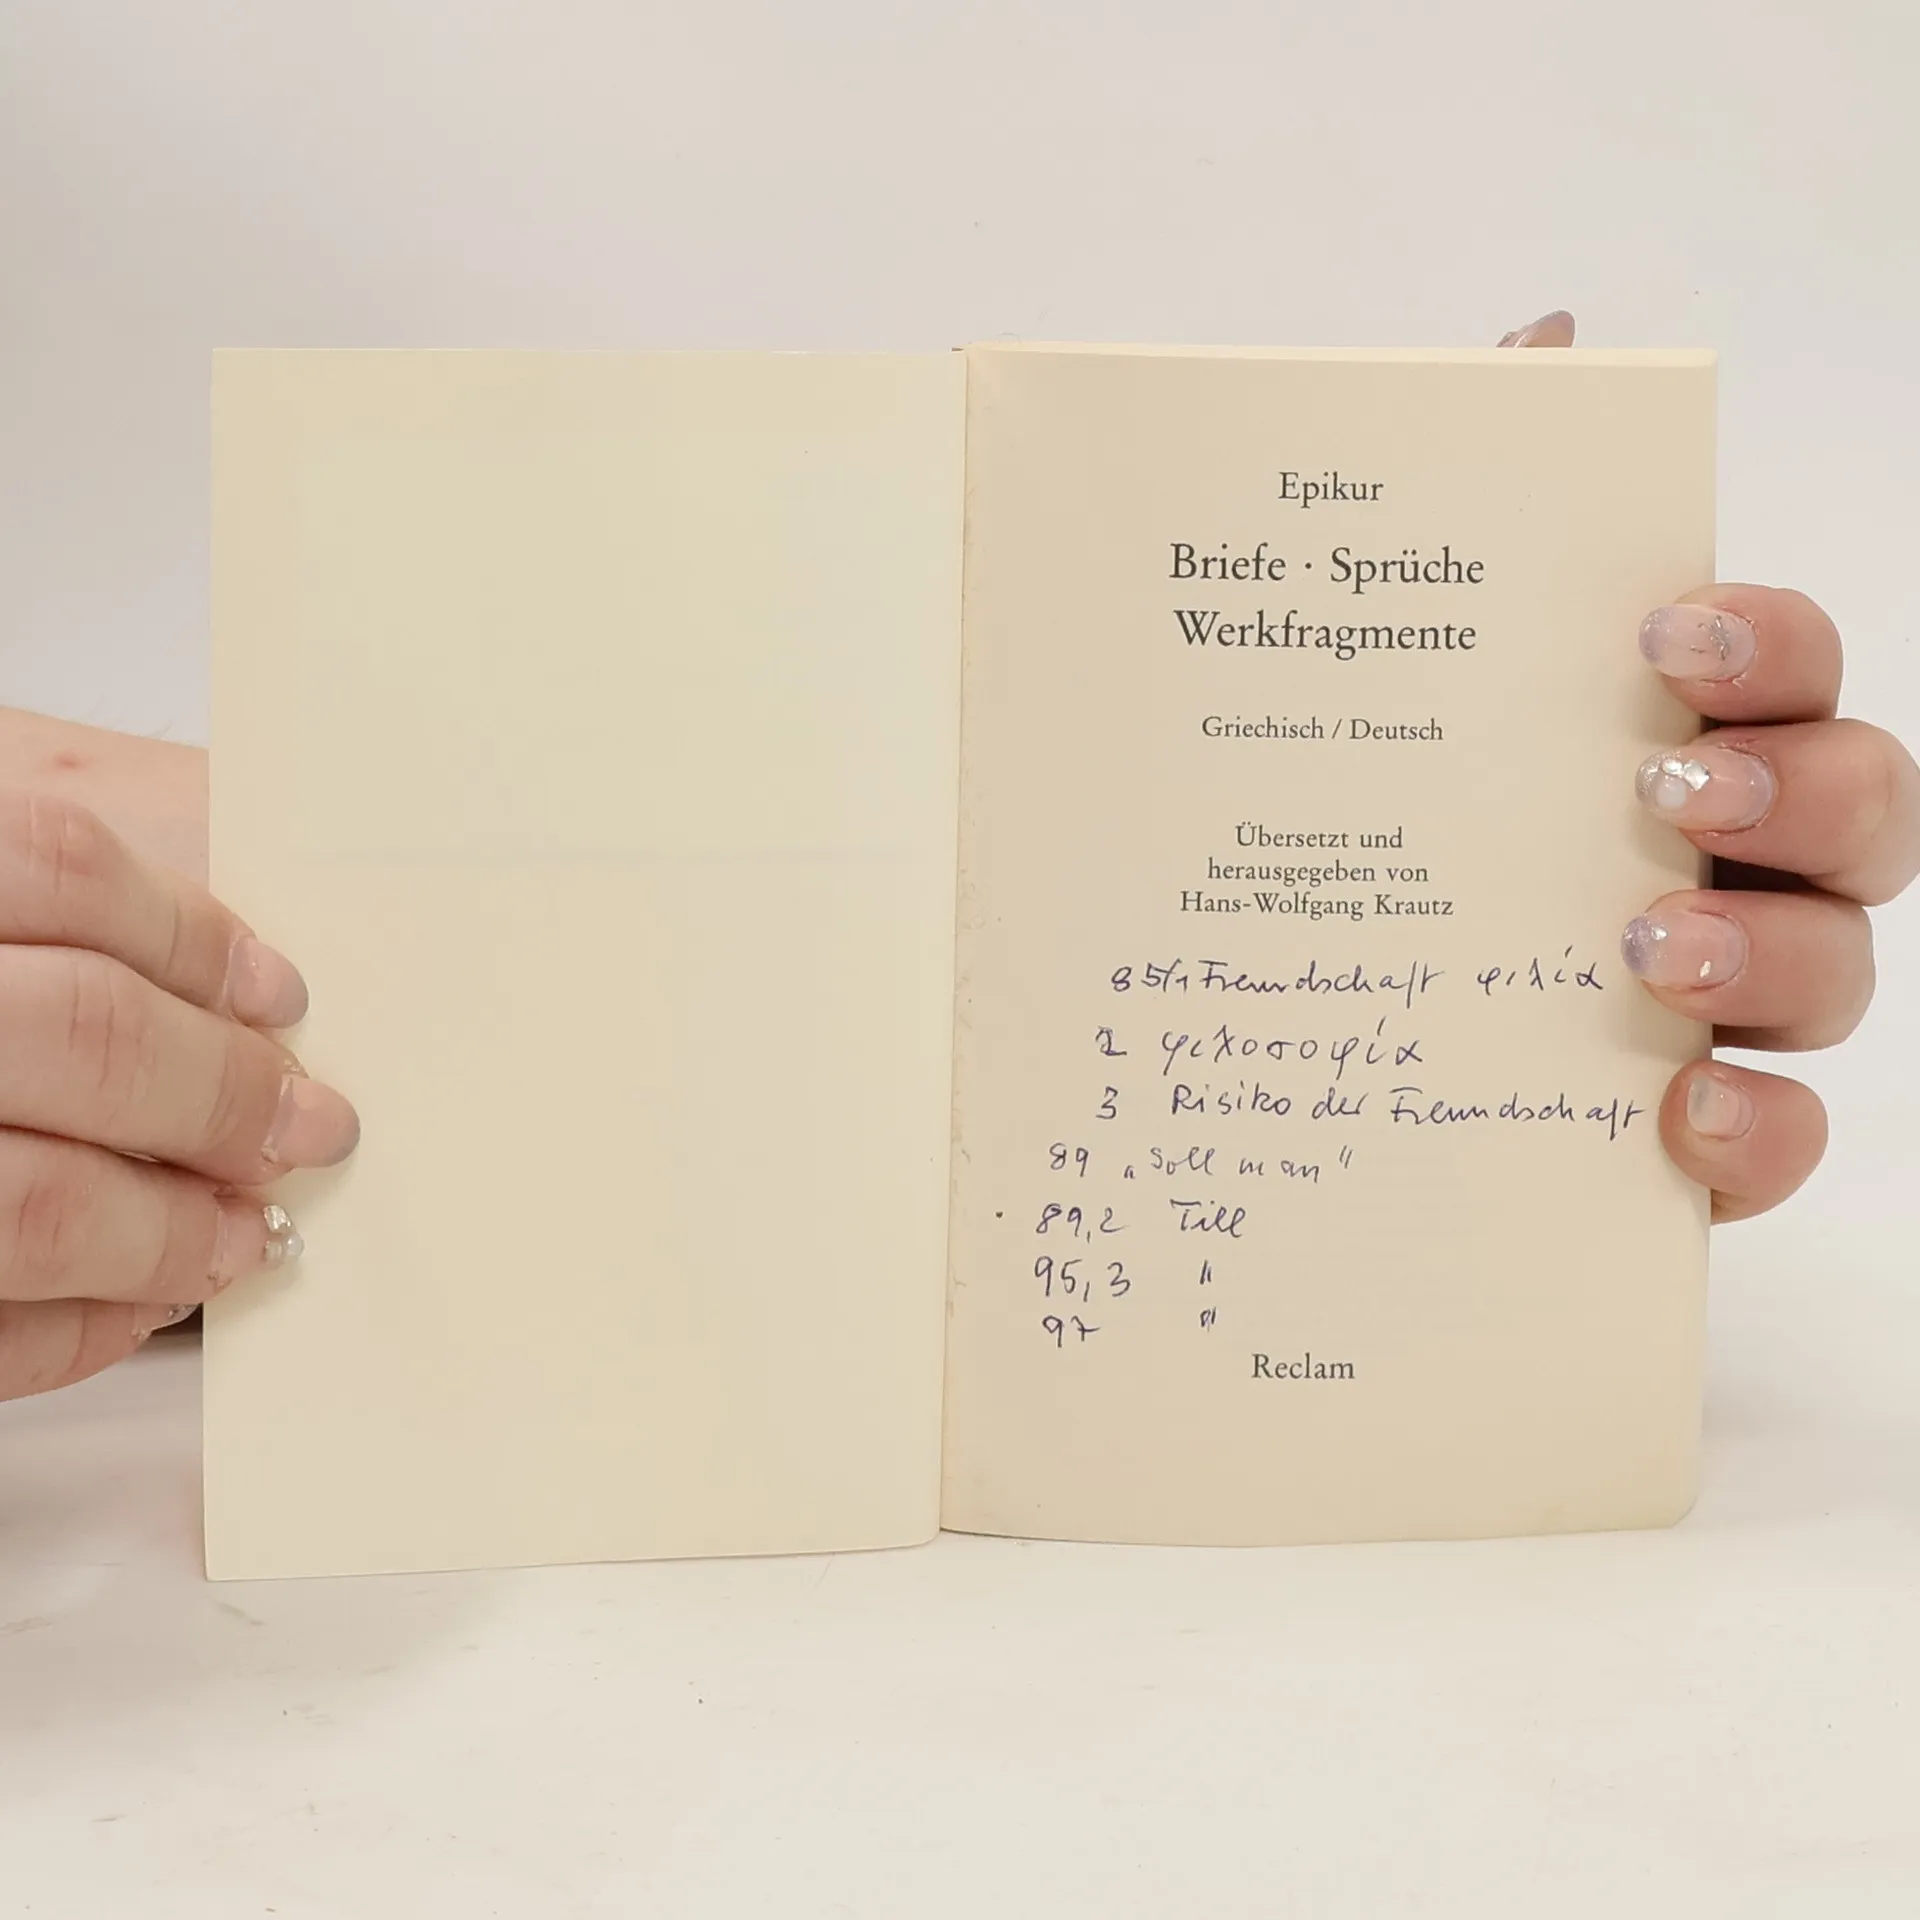 Epikur
Briefe · Sprüche
Werkfragmente
Griechisch / Deutsch
Übersetzt und
herausgegeben von
Hans-Wolfgang Krautz
85/1 Freundschaft φιλία
2 φιλοσοφία
3 Risiko der Freundschaft
89 „Soll man"
· 89,2 Till
95,3 "
97 "
Reclam